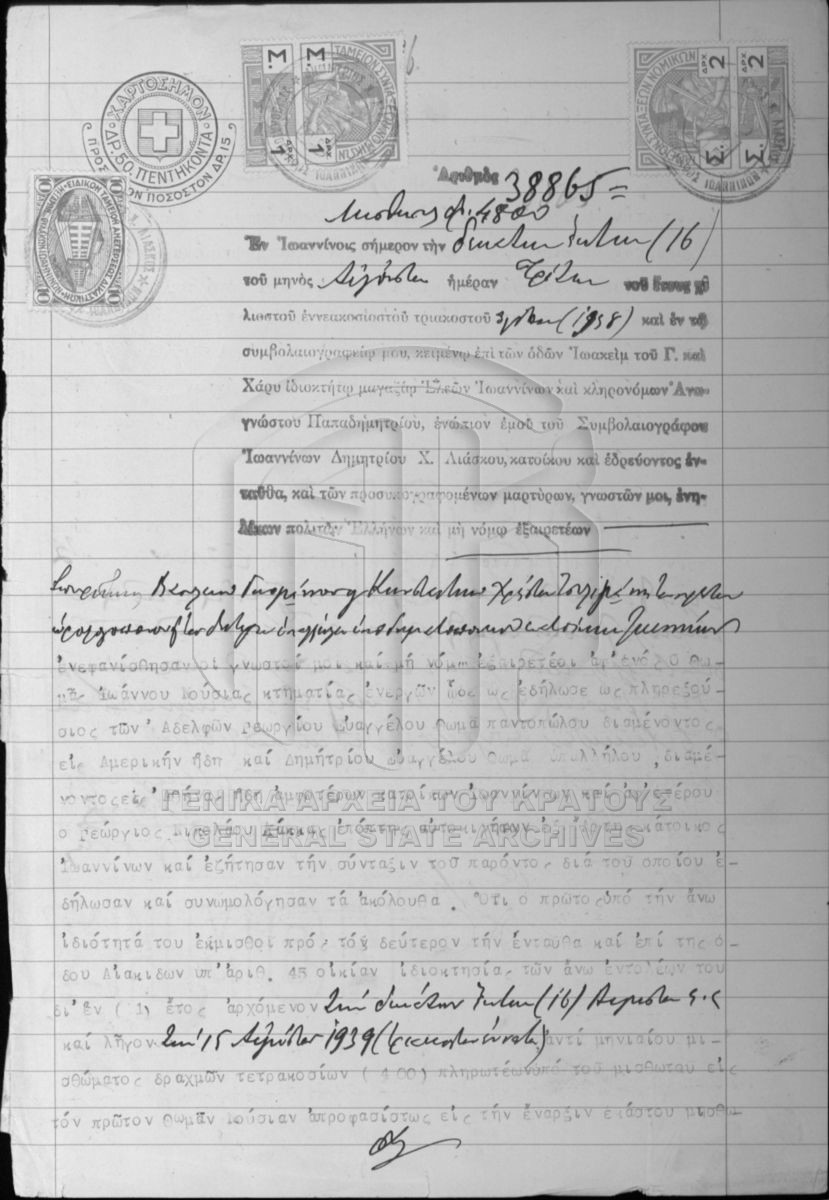 ΧΑΡΤΟΣΗΜΟΝ
ΔΡ. 50. ΠΕΝΤΗΚΟΝΤΑ
ΠΡΟΣ ΠΟΣΟΣΤΟΝ ΔΡ. 15
ΤΑΜΕΙΟΝ ΣΥΝΤΑΞΕΩΝ ΝΟΜΙΚΩΝ
Σ. ΔΡΧ 1
Σ. ΔΡΧ 1
Σ. ΔΡΧ 2
Σ. ΔΡΧ 2
10 10
Ἀριθμὸς 38865=
Μίσθωσις 4800
Ἐν Ἰωαννίνοις σήμερον τὴν δεκάτην ἕκτην (16)
τοῦ μηνὸς Αὐγούστου ἡμέραν Τρίτην τοῦ ἔτους χι
λιοστοῦ ἐννεακοσιοστοῦ τριακοστοῦ ὀγδόου (1938) καὶ ἐν τῷ
συμβολαιογραφείῳ μου, κειμένῳ ἐπὶ τῶν ὁδῶν Ἰωακεὶμ τοῦ Γ. καὶ
Χάρυ ἰδιοκτήτῳ μαγαζὰρ Ἐλεῶν Ἰωαννίνων καὶ κληρονόμων Ἀνα-
γνώστου Παπαδημητρίου, ἐνώπιον ἐμοῦ τοῦ Συμβολαιογράφου
Ἰωαννίνων Δημητρίου Χ. Λιάσκου, κατοίκου καὶ ἑδρεύοντος ἐν-
ταῦθα, καὶ τῶν προσυπογραφομένων μαρτύρων, γνωστῶν μοι, ἐνη-
λίκων πολιτῶν Ἑλλήνων καὶ μὴ νόμῳ ἐξαιρετέων
Κωνσταντίνου Χρήστου
ἐνεφανίσθησαν οἱ γνωστοί μοι καί μή νόμῳ ἐξαιρετέοι ἀφ'ἑνός Ο Θω-
μᾶς Ἰωάννου Γούσιας κτηματίας ἐνεργῶν ὡς ἐδήλωσε ως πληρεξού-
σιος τῶν Ἀδελφῶν Γεωργίου Εὐαγγέλου Θωμᾶ παντοπώλου διαμένοντος
εἰς Ἀμερικήν ἤδη καί Δημητρίου Εὐαγγέλου Θωμᾶ ὑπαλλήλου, διαμέ-
νοντος εἰς Ἀθήνας ἤδη ἀμφοτέρων κατοίκων Ἰωαννίνων καί ἀφ'ἑτέρου
ο Γεώργιος Νικολάου ἐπόπτης αὐτοκινήτων ἐξ Ἄρτης κάτοικος
Ἰωαννίνων καί ἐζήτησαν τήν σύνταξιν τοῦ παρόντος διά τοῦ οποίου ἐ-
δήλωσαν καί συνωμολόγησαν τά ἀκόλουθα. Ὅτι ο πρῶτος ὑπό τήν ἄνω
ἰδιότητά του ἐκμισθοι πρός τόν δεύτερον τήν ἐνταῦθα καί ἐπί της ὁ-
δου Αἰακιδων ὑπ'ἀριθ. 45 οἰκίαν ἰδιοκτησίας τῶν ἄνω ἐντολέων του
δι'ἕν (1) ἔτος ἀρχόμενον τὴν δεκάτην ἕκτην (16) Αὐγούστου ἐ.ἔ
καί λῆγον τὴν 15 Αὐγούστου 1939 (τριακοστοῦ ἐννάτου) ἀντί μηνιαίου μι-
σθώματος δραχμῶν τετρακοσίων (400) πληρωτέων ὑπό τοῦ μισθωτοῦ εἰς
τόν πρῶτον Θωμᾶν Γούσιαν ἀπροφασίστως εἰς τήν ἔναρξιν ἑκάστου μισθω
ΓΕΝΙΚΑ ΑΡΧΕΙΑ ΤΟΥ ΚΡΑΤΟΥΣ
GENERAL STATE ARCHIVES